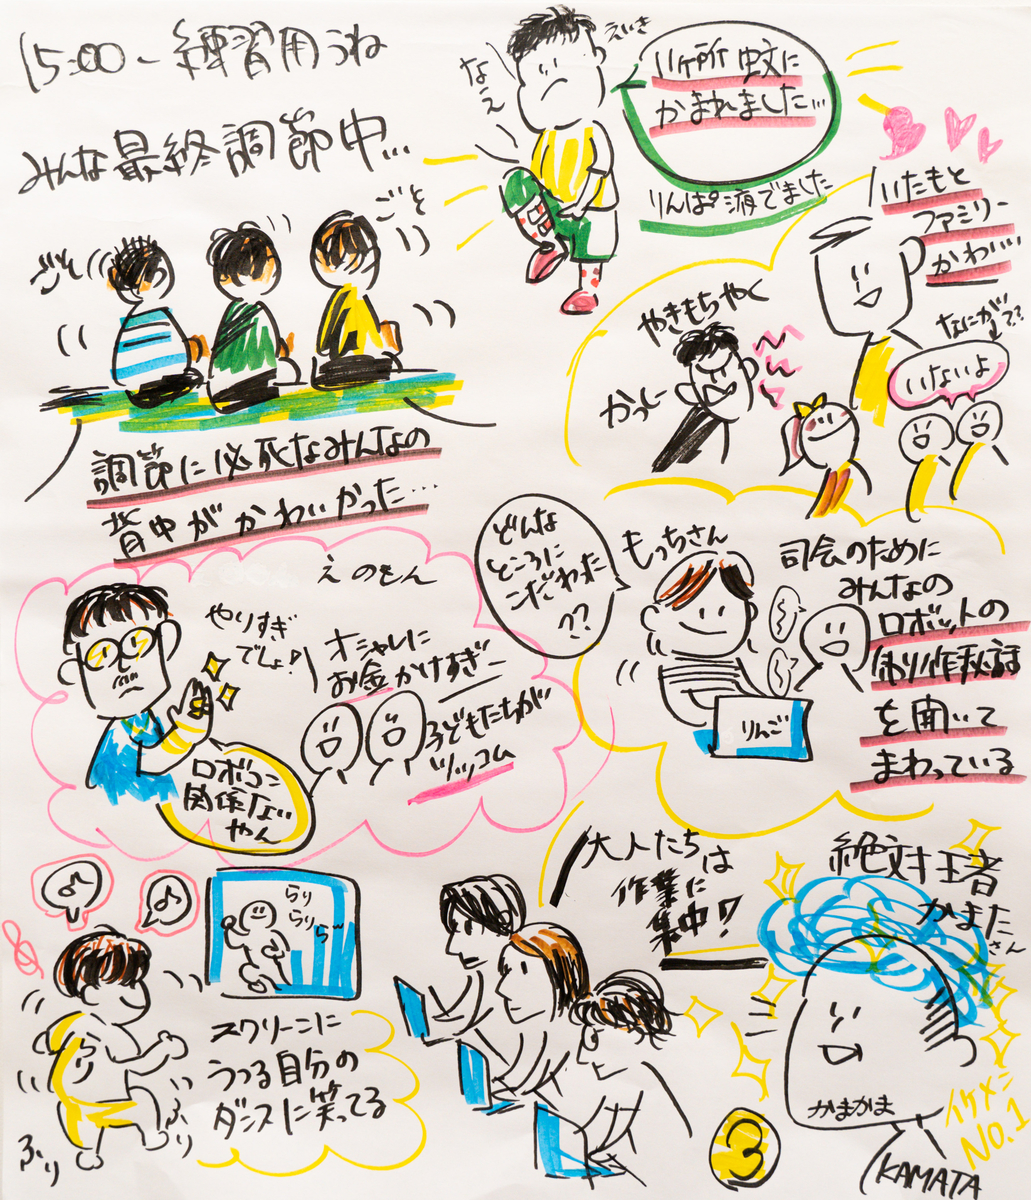 15:00〜練習用うね
みんな最終調節中...
ごそ
ごそ
調節に必死なみんなの
背中がかわいかった...
なえ
えいき
11ヶ所 蚊に
かまれました...
りんぱ液でました
いたもと
ファミリー
かわ...
なにが??
いないよ
やきもちやく
かっしー
えのもん
やりすぎ
でしょ♪
オシャレに
お金かけすぎー
子どもたちが
ツッコム
ロボコン
関係ない
やん
どんな
ところに
こだわった
??
もっちさん
りんご
司会のために
みんなの
ロボットの
制作秘話
を聞いて
まわっている
♪
♪
らり
らり
ら〜
スクリーンに
うつる自分の
ダンスに笑ってる
ふり
ふり
大人たちは
作業に
集中!?
絶対王者
かまたさん
かまかま
イケメン
NO.1
KAMATA
3